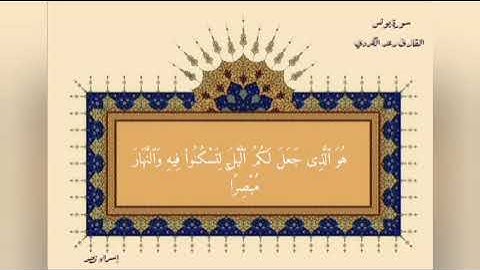 سورة يونس
القارئ رعد الكردي
هُوَ ٱلَّذِى جَعَلَ لَكُمُ ٱلَّيْلَ لِتَسْكُنُوا۟ فِيهِ وَٱلنَّهَارَ
مُبْصِرًا
إسراء نصر